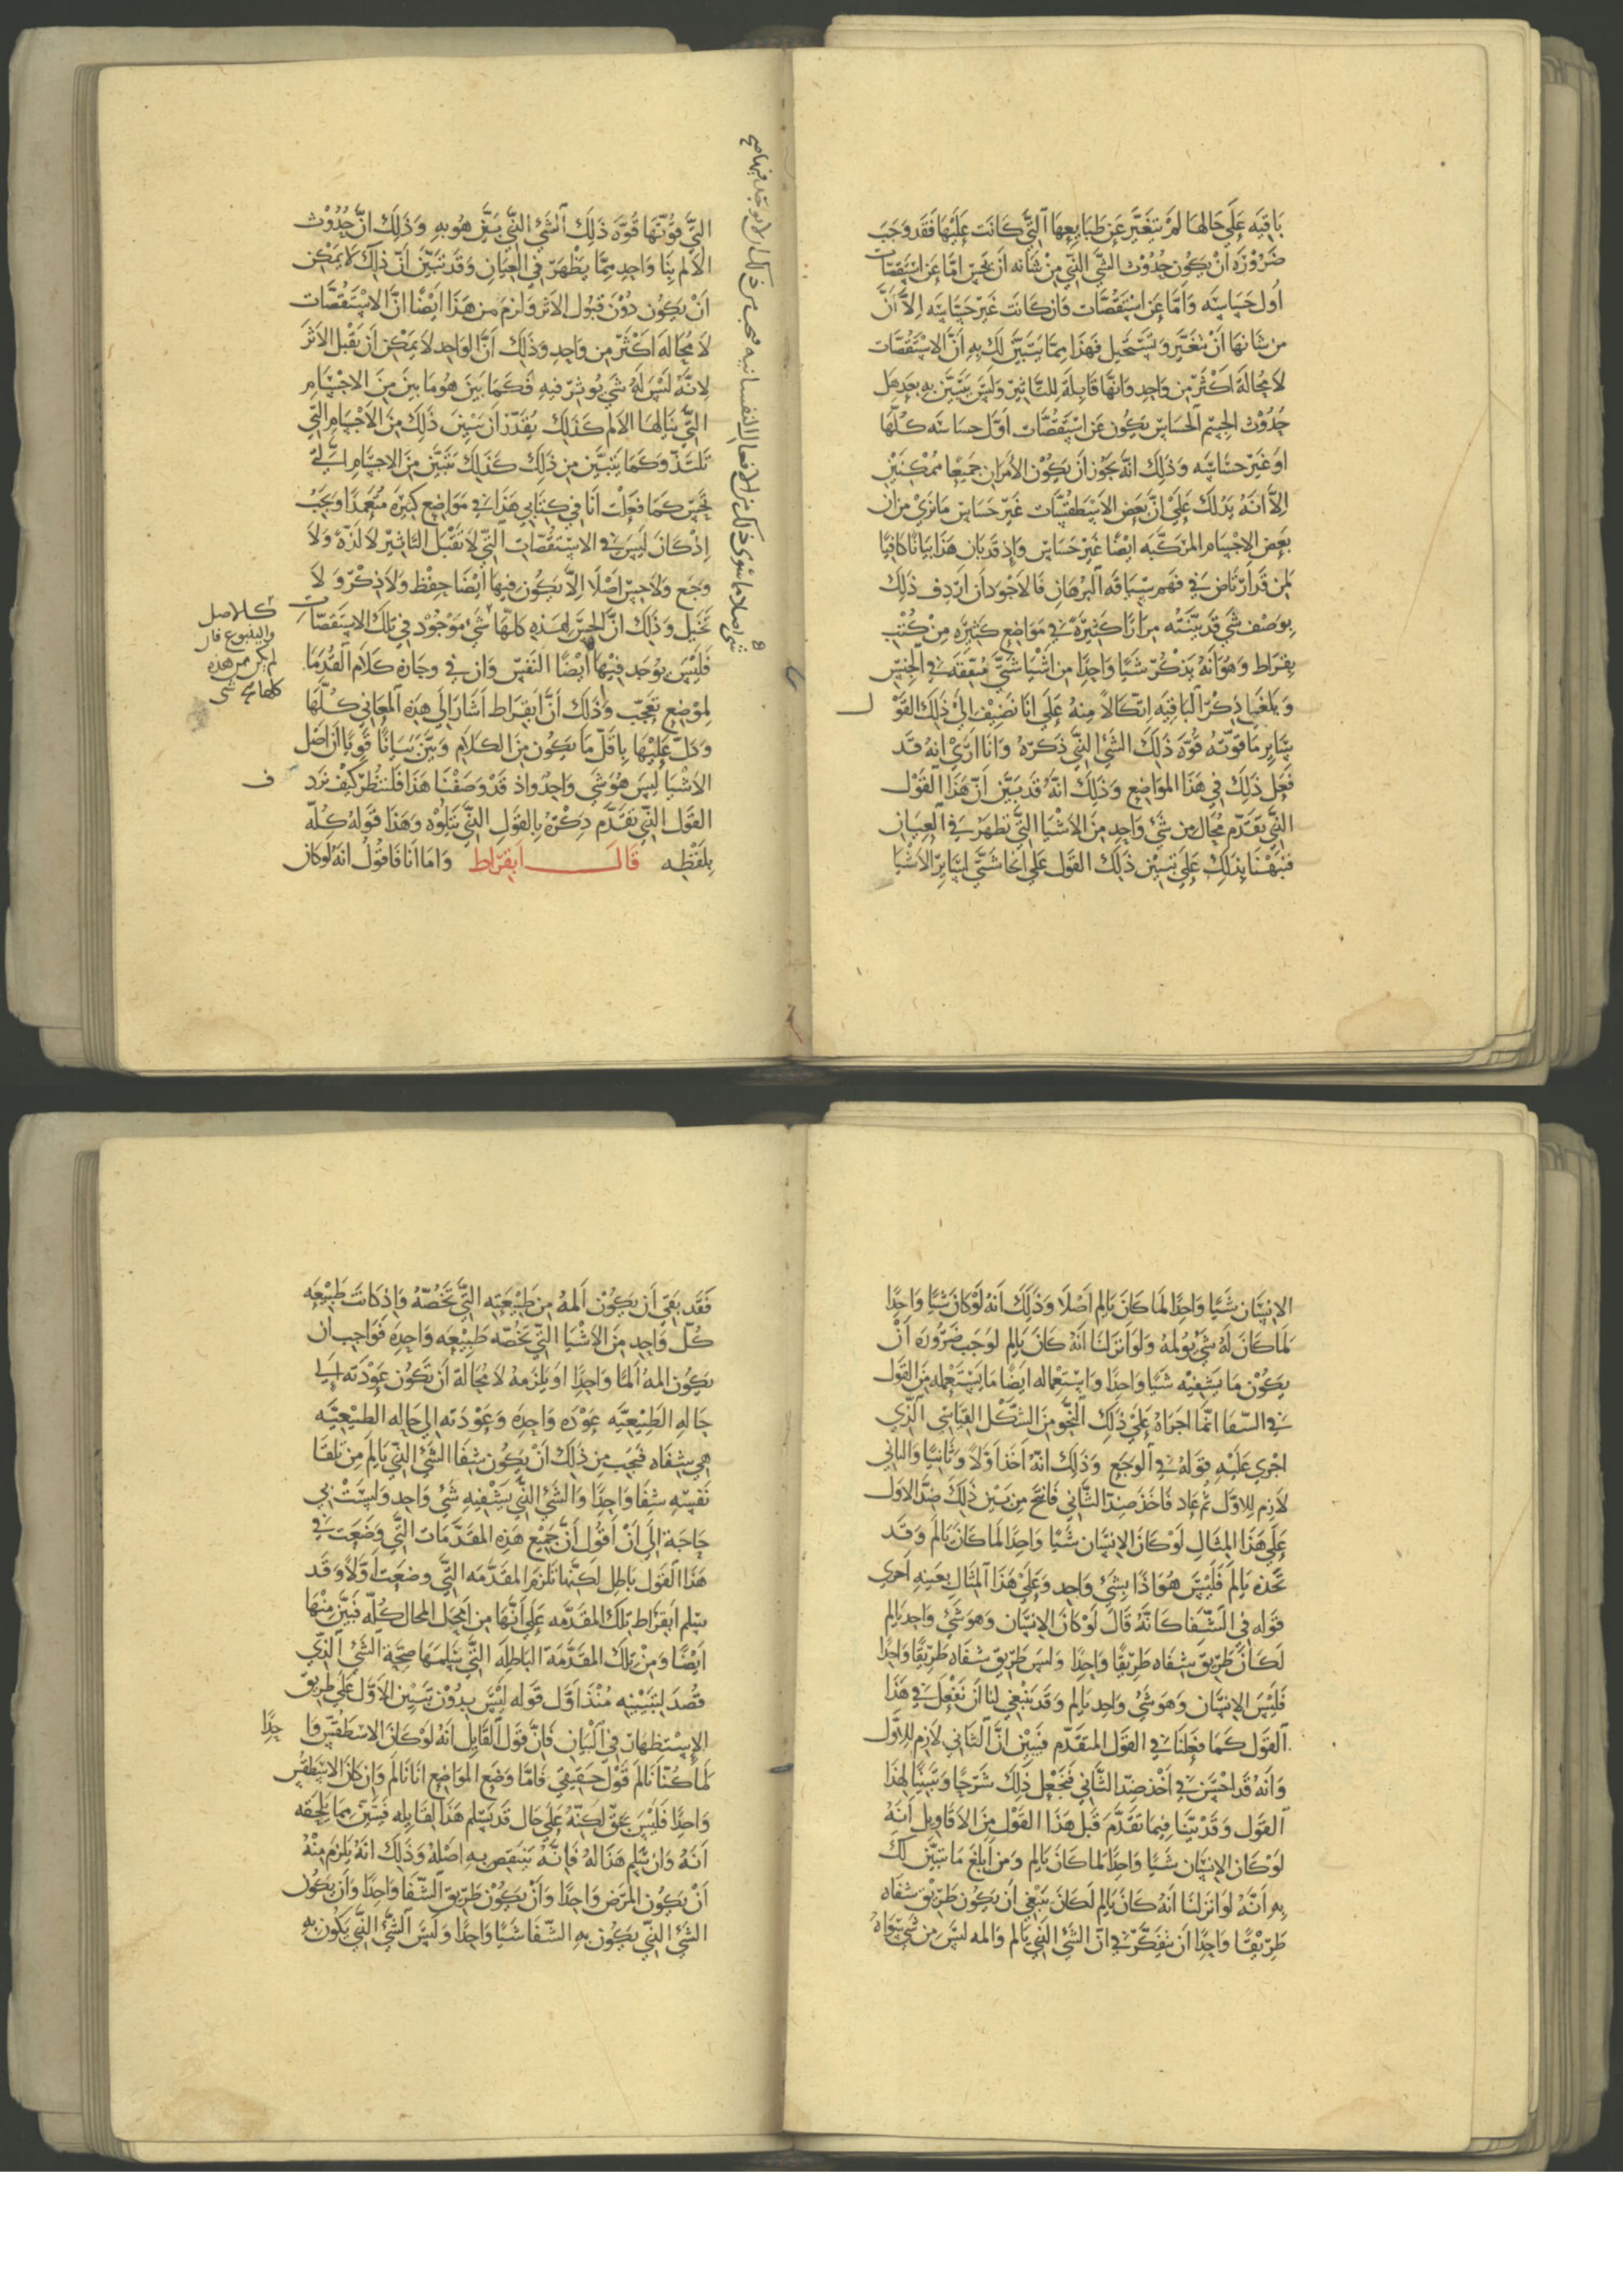 باقيه علي حالها لم تتغير عن طبايعها التي كانت عليها فقد وجب
ضرورة ان يكون حدوث الشي الذي من شانه ان يحس اما عن استقصات
اول حساسه واما عن استقصات فان كانت غير حساسه الا ان
من شانها ان تتغير وتستحيل فهذا مما يتبين لك به ان الاستقصات
لا محالة اكثر من واحد وانها قابلة للتاثير وليس يتبين به بعد هل
حدوث الجسم الحساس يكون عن استقصات اول حساسه كلها
او غير حساسه وذلك انه يجوز ان يكون الامران جميعا ممكنين
الا انه يدلك علي ان بعض الاسطقسات غير حساس ما نري من ان
بعض الاجسام المركبه ايضا غير حساس واذ قد بان هذا بيانا كافيا
لمن قد ارتاض في فهم سياقه البرهان فالاجود ان اردف ذلك
بوصف شي قد بينته مرارا كثيرة في مواضع كثيره من كتب
بقراط وهو انه يذكر شيا واحدا من اشيا شتي متفقه في الجنس
ويلغي ذكر الباقيه اتكالا منه علي انا نضيف الي ذلك القول
ساير ما قوته قوه ذلك الشي الذي ذكره وانا اري انه قد
فعل ذلك في هذا المواضع وذلك انه قد يبين ان هذا القول
الذي يقدم محال من شي واحد من الاشيا التي تظهر في العيان
فنبهنا بذلك علي تبيين ذلك القول علي انحا شتي لساير الاشيا
التي قوتها قوة ذلك الشي الذي بين هو به وذلك ان حدوث
الالم بنا واحد مما يظهر في العيان وقد تبين ان ذلك لا يمكن
ان يكون دون قبول الاثر ولزم من هذا ايضا ان الاستقصات
لا محالة اكثر من واحد وذلك ان الواحد لا يمكن ان يقبل الاثر
لانه ليس له شي يوثر فيه فكما بين هو ما بين من الاجسام
التي ينالها الالم كذلك يقدر ان يبين ذلك من الاجسام التي
تلتذ وكما يتبين من ذلك كذلك يتبين من الاجسام التي
تحس كما فعلت انا في كتابي هذا في مواضع كثيرة متعمدا ويجب
اذ كان ليس في الاستقصات التي لا تقبل التاثير لا لذة ولا
وجع ولا حس اصلا الا يكون فيها ايضا حفظ ولا ذكر ولا
تخيل وذلك ان الحس لهذه كلها شي موجود في تلك الاستقصات
فليس يوجد فيها ايضا النفس وان في وجازة كلام القدما
لموضع تعجب وذلك ان ابقراط اشار الي هذه المعاني كلها
ودل عليها باقل ما يكون من الكلام وبين بيانا قويا ان اصل
الاشيا ليس هو شي واحد واذ قد وصفنا هذا فلننظر كيف نرد
القول الذي تقدم ذكره بالقول الذي يتلوه وهذا قوله كله
بلفظه قال ابقراط واما انا فاقول انه لو كان
كالاصل
والينبوع فان
لم يكن من هذه
كلها شي
ف
الانسان شيا واحدا لما كان يالم اصلا وذلك انه لو كان شيا واحدا
لما كان له شي يولمه ولو انزلنا انه كان يالم لوجب ضرورة ان
يكون ما يشفيه شيا واحدا واستعماله ايضا ما يستعمله من القول
في الشفا انما اجراه علي ذلك النحو من الشكل القياسي الذي
اجري عليه قوله في الوجع وذلك انه اخذ اولا وثانيا والثاني
لازم للاول ثم عاد فاخذ ضد الثاني فانتج من بين ذلك ضد الاول
علي هذا المثال لو كان الانسان شيا واحدا لما كان يالم وقد
نجده يالم فليس هو اذا بشي واحد وعلي هذا المثال بعينه اجري
قوله في الشفا كانه قال لو كان الانسان وهو شي واحد يالم
لكان طريق شفاه طريقا واحدا وليس طريق شفاه طريقا واحدا
فليس الانسان وهو شي واحد يالم وقد ينبغي لنا ان نفعل في هذا
القول كما فعلنا في القول المتقدم فنبين ان الثاني لازم للاول
وانه قد احسن في اخذ ضد الثاني فنجعل ذلك شرحا وتبيينا لهذا
القول وقد بينا فيما تقدم قبل هذا القول من الاقاويل انه
لو كان الانسان شيا واحدا لما كان يالم ومن ابلغ ما يتبين لك
به انه لو انزلنا انه كان يالم لكان ينبغي ان يكون طريق شفاه
طريقا واحدا ان تفكر في ان الشي الذي يالم والمه ليس من شي سواه
فقد بقي ان يكون المه من طبيعته التي تخصه واذ كانت طبيعه
كل واحد من الاشيا التي تخصه طبيعه واحده فواجب ان
يكون المه الما واحدا او يلزمه لا محالة ان تكون عودته الي
حاله الطبيعيه عوده واحده وعودته الي حاله الطبيعيه
هي شفاه فيجب من ذلك ان يكون شفا الشي الذي يالم من تلقا
نفسه شفا واحدا والشي الذي يشفيه شي واحد وليست بي
حاجة الي ان اقول ان جميع هذه المقدمات التي وضعت في
هذا القول باطل لكنها تلزم المقدمه التي وضعت اولا وقد
سلم ابقراط تلك المقدمه علي انها من امحل المحال كله فبين منها
ايضا ومن تلك المقدمة الباطله التي سلمها صحة الشي الذي
قصد لتبيينه منذ اول قوله ليس بدون تبيين الاول علي طريق
الاستظهار في البيان فان قول القايل انه لو كان الاسطقس واحدا
لما كنا نالم قول حقيقي فاما وضع المواضع انا نالم وان كان الاسطقس
واحدا فليس بحق لكنه علي حال قد يسلم هذا لقايله فيبين مما يلحقه
انه وان سلم هذا له فانه ينتقص به اصله وذلك انه يلزم منه
ان يكون المرض واحدا وان يكون طريق الشفا واحدا وان يكون
الشي الذي يكون به الشفا شيا واحدا وليس الشي الذي يكون به